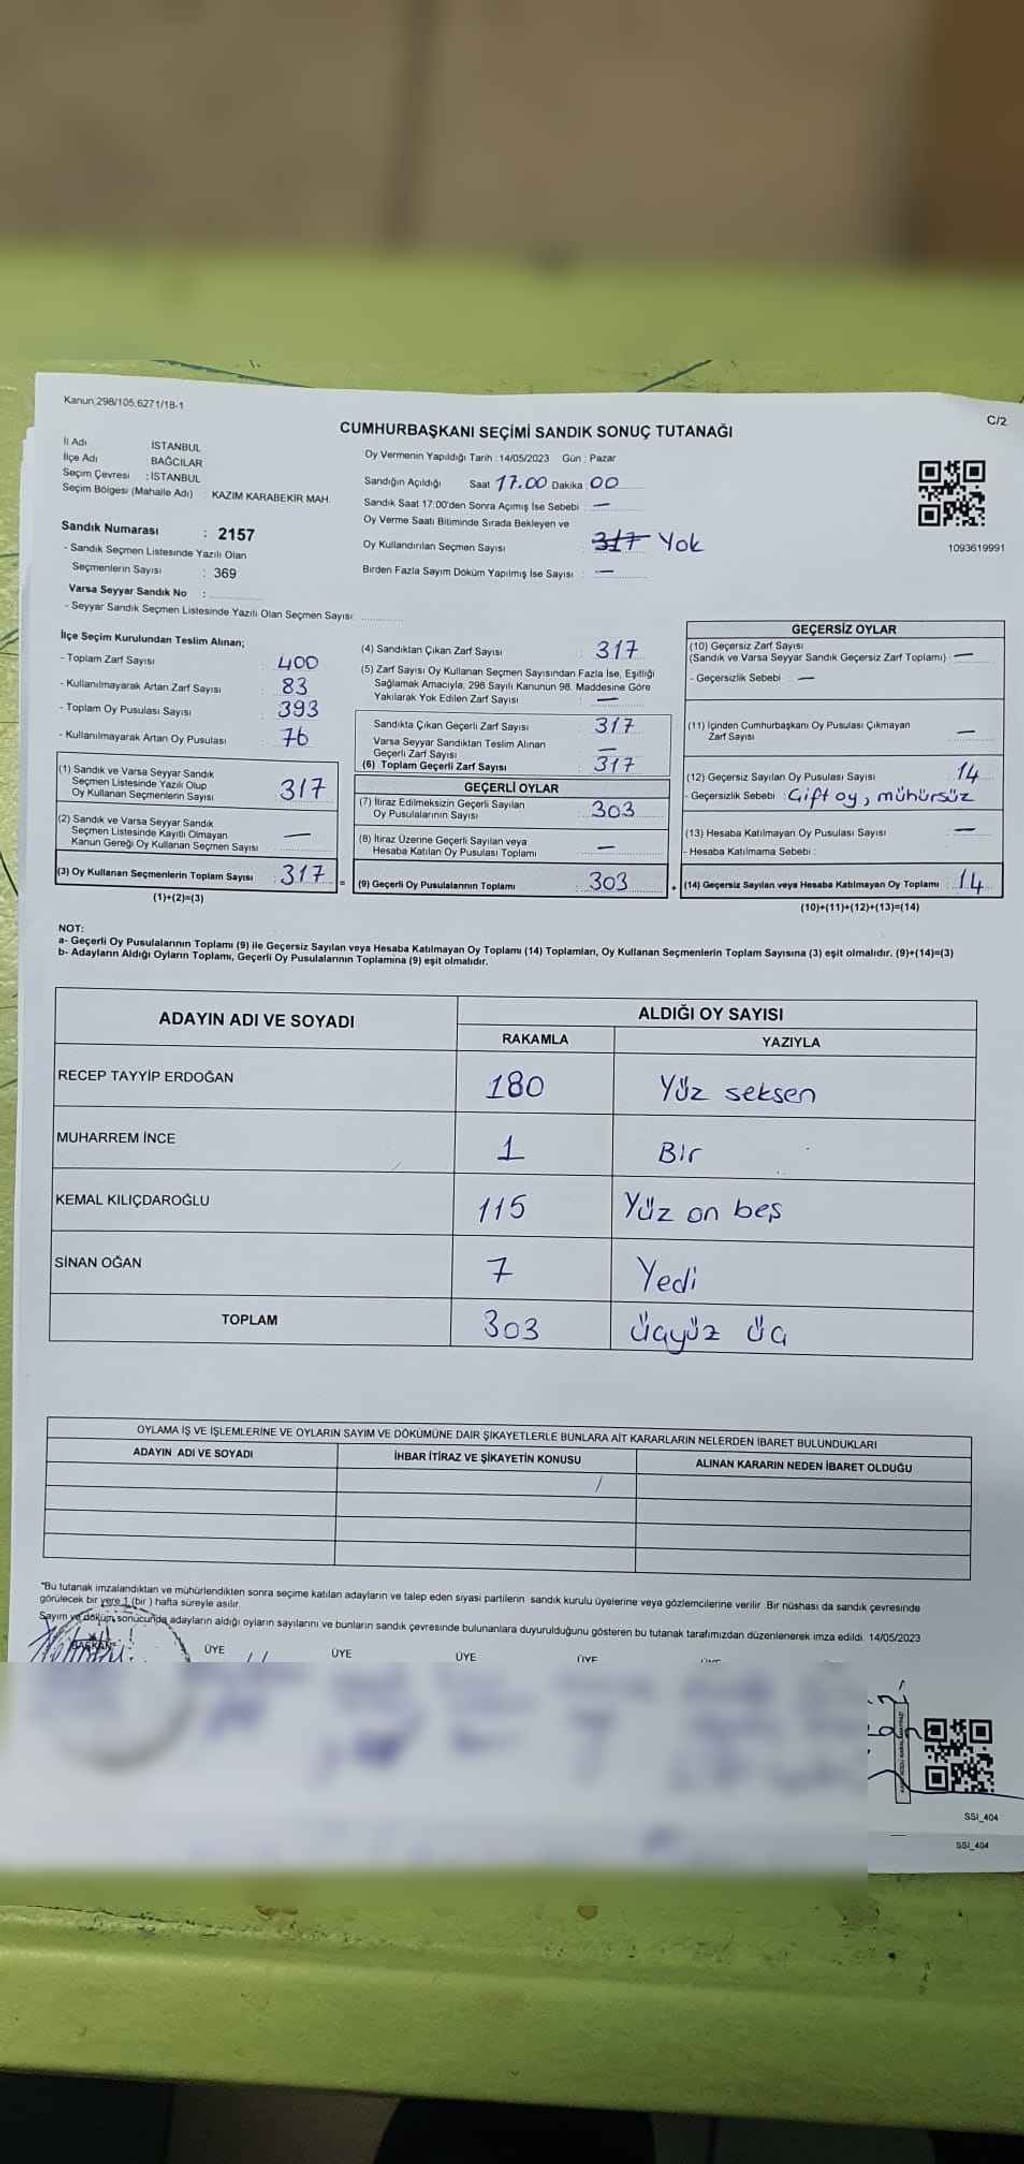 Kanun 298/105,6271/18-1
C/2
CUMHURBAŞKANI SEÇİMİ SANDIK SONUÇ TUTANAĞI
İl Adı İSTANBUL
İlçe Adı : BAĞCILAR
Seçim Çevresi : İSTANBUL
Seçim Bölgesi (Mahalle Adı) KAZIM KARABEKİR MAH.
Sandık Numarası : 2157
- Sandık Seçmen Listesinde Yazılı Olan
Seçmenlerin Sayısı : 369
Varsa Seyyar Sandık No :
- Seyyar Sandık Seçmen Listesinde Yazılı Olan Seçmen Sayısı
Oy Vermenin Yapıldığı Tarih : 14/05/2023 Gün : Pazar
Sandığın Açıldığı Saat 17.00 Dakika 00
Sandık Saat 17:00'den Sonra Açımış İse Sebebi : —
Oy Verme Saati Bitiminde Sırada Bekleyen ve
Oy Kullandırılan Seçmen Sayısı : 317 Yok
Birden Fazla Sayım Döküm Yapılmış İse Sayısı : —
1093619991
İlçe Seçim Kurulundan Teslim Alınan;
- Toplam Zarf Sayısı : 400
- Kullanılmayarak Artan Zarf Sayısı : 83
- Toplam Oy Pusulası Sayısı : 393
- Kullanılmayarak Artan Oy Pusulası : 76
(1) Sandık ve Varsa Seyyar Sandık
Seçmen Listesinde Yazılı Olup
Oy Kullanan Seçmenlerin Sayısı 317
(2) Sandık ve Varsa Seyyar Sandık
Seçmen Listesinde Kayıtlı Olmayan
Kanun Gereği Oy Kullanan Seçmen Sayısı —
(3) Oy Kullanan Seçmenlerin Toplam Sayısı : 317 =
(1)+(2)=(3)
(4) Sandıktan Çıkan Zarf Sayısı : 317
(5) Zarf Sayısı Oy Kullanan Seçmen Sayısından Fazla İse, Eşitliği
Sağlamak Amacıyla, 298 Sayılı Kanunun 98. Maddesine Göre
Yakılarak Yok Edilen Zarf Sayısı : —
Sandıkta Çıkan Geçerli Zarf Sayısı : 317
Varsa Seyyar Sandıktan Teslim Alınan
Geçerli Zarf Sayısı : —
(6) Toplam Geçerli Zarf Sayısı : 317
GEÇERLİ OYLAR
(7) İtiraz Edilmeksizin Geçerli Sayılan
Oy Pusulalarının Sayısı : 303
(8) İtiraz Üzerine Geçerli Sayılan veya
Hesaba Katılan Oy Pusulası Toplamı : —
(9) Geçerli Oy Pusulalarının Toplamı : 303 +
GEÇERSİZ OYLAR
(10) Geçersiz Zarf Sayısı
(Sandık ve Varsa Seyyar Sandık Geçersiz Zarf Toplamı) —
- Geçersizlik Sebebi : —
(11) İçinden Cumhurbaşkanı Oy Pusulası Çıkmayan
Zarf Sayısı —
(12) Geçersiz Sayılan Oy Pusulası Sayısı 14
- Geçersizlik Sebebi : Çift oy, mühürsüz
(13) Hesaba Katılmayan Oy Pusulası Sayısı —
- Hesaba Katılmama Sebebi :
(14) Geçersiz Sayılan veya Hesaba Katılmayan Oy Toplamı : 14
(10)+(11)+(12)+(13)=(14)
NOT:
a- Geçerli Oy Pusulalarının Toplamı (9) ile Geçersiz Sayılan veya Hesaba Katılmayan Oy Toplamı (14) Toplamları, Oy Kullanan Seçmenlerin Toplam Sayısına (3) eşit olmalıdır. (9)+(14)=(3)
b- Adayların Aldığı Oyların Toplamı, Geçerli Oy Pusulalarının Toplamına (9) eşit olmalıdır.
ADAYIN ADI VE SOYADI ALDIĞI OY SAYISI
RAKAMLA YAZIYLA
RECEP TAYYİP ERDOĞAN 180 Yüz seksen
MUHARREM İNCE 1 Bir
KEMAL KILIÇDAROĞLU 115 Yüz on beş
SİNAN OĞAN 7 Yedi
TOPLAM 303 üçyüz üç
OYLAMA İŞ VE İŞLEMLERİNE VE OYLARIN SAYIM VE DÖKÜMÜNE DAİR ŞİKAYETLERLE BUNLARA AİT KARARLARIN NELERDEN İBARET BULUNDUKLARI
ADAYIN ADI VE SOYADI İHBAR İTİRAZ VE ŞİKAYETİN KONUSU ALINAN KARARIN NEDEN İBARET OLDUĞU
"Bu tutanak imzalandıktan ve mühürlendikten sonra seçime katılan adayların ve talep eden siyasi partilerin sandık kurulu üyelerine veya gözlemcilerine verilir. Bir nüshası da sandık çevresinde
görülecek bir yere 1 (bir ) hafta süreyle asılır.
Sayım ve döküm sonucunda adayların aldığı oyların sayılarını ve bunların sandık çevresinde bulunanlara duyurulduğunu gösteren bu tutanak tarafımızdan düzenlenerek imza edildi. 14/05/2023
BAŞKAN ÜYE ÜYE ÜYE ÜYE
SSI_404
SSI_404